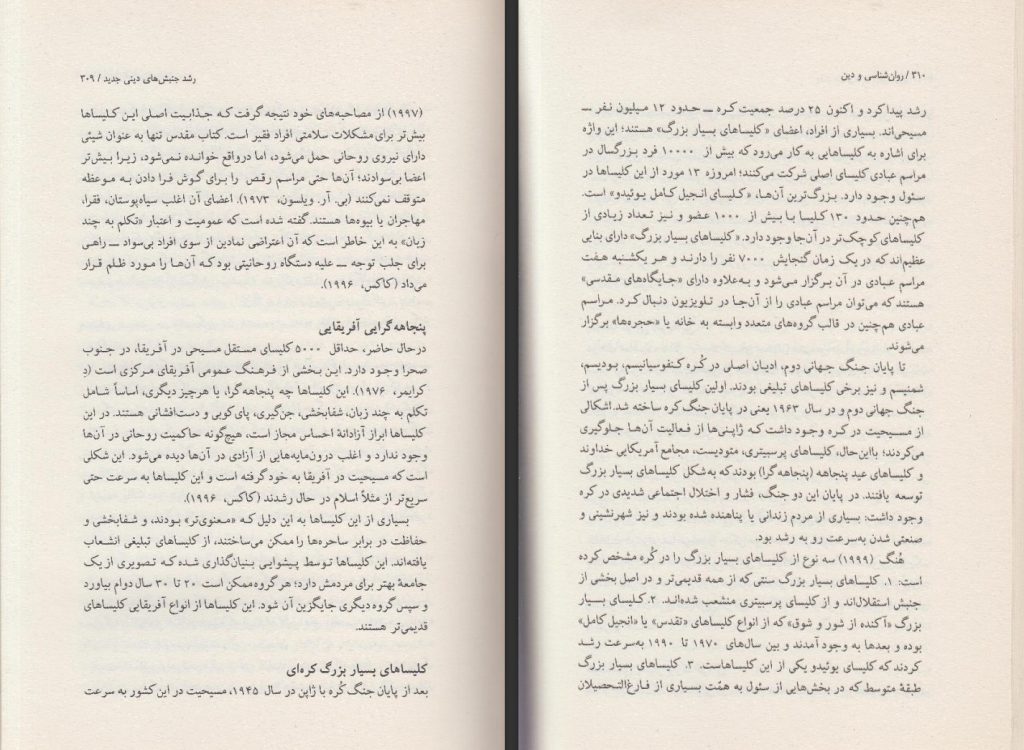 رشد جنبش‌های دینی جدید / ۳۰۹
(۱۹۹۷) از مصاحبه‌های خود نتیجه گرفت که جذابیت اصلی این کلیساها
بیش‌تر برای مشکلات سلامتی افراد فقیر است. کتاب مقدس تنها به عنوان شیئی
دارای نیروی روحانی حمل می‌شود، اما درواقع خوانده نمی‌شود، زیرا بیش‌تر
اعضا بی‌سوادند؛ آن‌ها حتی مراسم رقص را برای گوش فرا دادن به موعظه
متوقف نمی‌کنند (بی. آر. ویلسون، ۱۹۷۳). اعضای آن اغلب سیاه‌پوستان، فقرا،
مهاجران یا بیوه‌ها هستند. گفته شده است که عمومیت و اعتبار «تکلم به چند
زبان» به این خاطر است که آن اعتراضی نمادین از سوی افراد بی‌سواد ــ راهی
برای جلب توجه ــ علیه دستگاه روحانیتی بود که آن‌ها را مورد ظلم قرار
می‌داد (کاکس، ۱۹۹۶).
پنجاهه‌گرایی آفریقایی
درحال حاضر، حداقل ۵۰۰۰ کلیسای مستقل مسیحی در آفریقا، در جنوب
صحرا وجود دارد. این بخشی از فرهنگ عمومی آفریقای مرکزی است (دِ
کرایمر، ۱۹۷۶). این کلیساها چه پنجاهه‌گرا، یا هرچیز دیگری، اساساً شامل
تکلم به چند زبان، شفابخشی، جن‌گیری، پای‌کوبی و دست‌افشانی هستند. در این
کلیساها ابراز آزادانهٔ احساس مجاز است، هیچ‌گونه حاکمیت روحانی در آن‌ها
وجود ندارد و اغلب درون‌مایه‌هایی از آزادی در آن‌ها دیده می‌شود. این شکلی
است که مسیحیت در آفریقا به خود گرفته است و این کلیساها به سرعت حتی
سریع‌تر از مثلاً اسلام در حال رشدند (کاکس، ۱۹۹۶).
بسیاری از این کلیساها به این دلیل که «معنوی‌تر» بودند، و شفابخشی و
حفاظت در برابر ساحره‌ها را ممکن می‌ساختند، از کلیساهای تبلیغی انشعاب
یافته‌اند. این کلیساها توسط پیشوایی بنیان‌گذاری شده که تصویری از یک
جامعهٔ بهتر برای مردمش دارد؛ هر گروه ممکن است ۲۰ تا ۳۰ سال دوام بیاورد
و سپس گروه دیگری جایگزین آن شود. این کلیساها از انواع آفریقایی کلیساهای
قدیمی‌تر هستند.
کلیساهای بسیار بزرگ کره‌ای
بعد از پایان جنگ کُره با ژاپن در سال ۱۹۴۵، مسیحیت در این کشور به سرعت
۳۱۰ / روان‌شناسی و دین
رشد پیدا کرد و اکنون ۲۵ درصد جمعیت کره ــ حدود ۱۲ میلیون نفر ــ
مسیحی‌اند. بسیاری از افراد، اعضای «کلیساهای بسیار بزرگ» هستند؛ این واژه
برای اشاره به کلیساهایی به کار می‌رود که بیش از ۱۰۰۰۰ فرد بزرگسال در
مراسم عبادی کلیسای اصلی شرکت می‌کنند؛ امروزه ۱۳ مورد از این کلیساها در
سئول وجود دارد. بزرگ‌ترین آن‌ها، «کلیسای انجیل کامل یوئیدو» است.
هم‌چنین حدود ۱۳۰ کلیسا با بیش از ۱۰۰۰ عضو و نیز تعداد زیادی از
کلیساهای کوچک‌تر در آن‌جا وجود دارد. «کلیساهای بسیار بزرگ» دارای بنایی
عظیم‌اند که در یک زمان گنجایش ۷۰۰۰ نفر را دارند و هر یکشنبه هفت
مراسم عبادی در آن برگزار می‌شود و به‌علاوه دارای «جایگاه‌های مقدسی»
هستند که می‌توان مراسم عبادی را از آن‌جا در تلویزیون دنبال کرد. مراسم
عبادی هم‌چنین در قالب گروه‌های متعدد وابسته به خانه یا «حجره‌ها» برگزار
می‌شوند.
تا پایان جنگ جهانی دوم، ادیان اصلی در کُره کنفوسیانیسم، بودیسم،
شمنیسم و نیز برخی کلیساهای تبلیغی بودند. اولین کلیسای بسیار بزرگ پس از
جنگ جهانی دوم و در سال ۱۹۶۳ یعنی در پایان جنگ کره ساخته شد. اشکالی
از مسیحیت در کره وجود داشت که ژاپنی‌ها از فعالیت آن‌ها جلوگیری
می‌کردند؛ بااین‌حال، کلیساهای پرسبیتری، متودیست، مجامع آمریکایی خداوند
و کلیساهای عید پنجاهه (پنجاهه‌گرا) بودند که به‌شکل کلیساهای بسیار بزرگ
توسعه یافتند. در پایان این دو جنگ، فشار و اختلال اجتماعی شدیدی در کره
وجود داشت: بسیاری از مردم زندانی یا پناهنده شده بودند و نیز شهرنشینی و
صنعتی شدن به‌سرعت رو به رشد بود.
هُنگ (۱۹۹۹) سه نوع از کلیساهای بسیار بزرگ را در کُره مشخص کرده
است: ۱. کلیساهای بسیار بزرگ سنتی که از همه قدیمی‌تر و در اصل بخشی از
جنبش استقلال‌اند و از کلیسای پرسبیتری منشعب شده‌اند. ۲. کلیسای بسیار
بزرگ «آکنده از شور و شوق» که از انواع کلیساهای «تقدس» یا «انجیل کامل»
بوده و بعدها به وجود آمدند و بین سال‌های ۱۹۷۰ تا ۱۹۹۰ به‌سرعت رشد
کردند که کلیسای یوئیدو یکی از این کلیساهاست. ۳. کلیساهای بسیار بزرگ
طبقهٔ متوسط که در بخش‌هایی از سئول به همّت بسیاری از فارغ‌التحصیلان